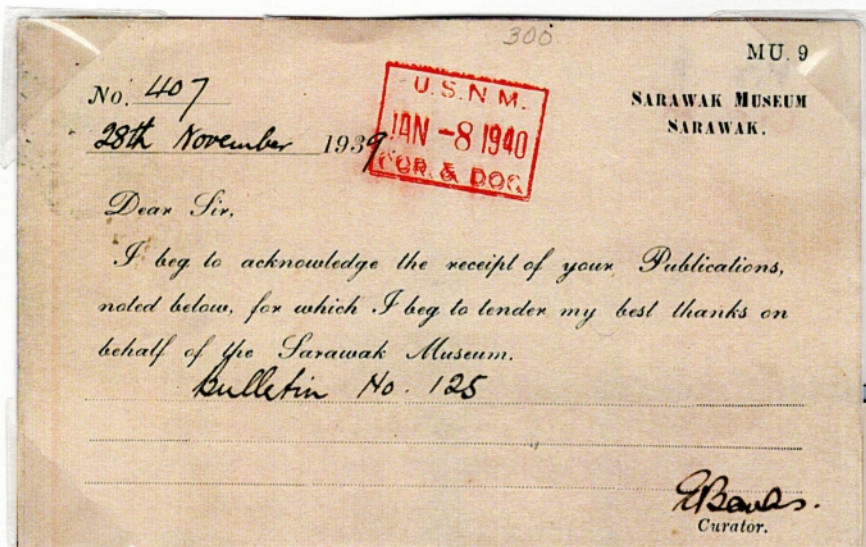 300
MU. 9
No. 407
SARAWAK MUSEUM
SARAWAK.
28th November 1939
U.S.N M.
JAN -8 1940
COR. & DOC.
Dear Sir,
I beg to acknowledge the receipt of your Publications,
noted below, for which I beg to tender my best thanks on
behalf of the Sarawak Museum.
Bulletin No. 125
EBanks.
Curator.